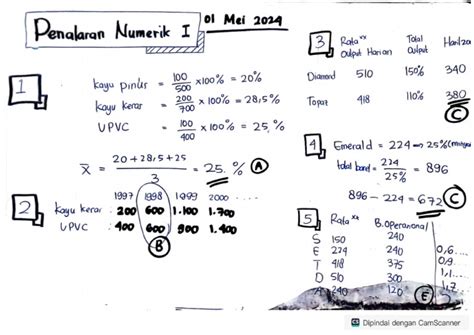 Penalaran Numerik I
01 Mei 2024
1
Kayu Pinus = 100/500 x 100% = 20%
Kayu Keras = 200/700 x 100% = 28,5%
UPVC = 100/400 x 100% = 25%
X = 20 + 28,5 + 25 / 3 = 25. % (A)
2
1997 1998 1999 2000
Kayu Keras : 200 600 1.100 1.700
UPVC : 400 600 900 1.400
(B)
3
Rata²
Output Harian
Total
Output
Diamond 510 150% 340
Topaz 418 110% 380
(C)
4
Emerald = 224 → 25%
total band = 224/25% = 896
896 - 224 = 672 (C)
5
Rata²
B.Operasional
S 150 240
E 224 240 0,6....
T 418 375 0,9...
D 510 300 1,1....
A 240 120 (E)
Dipindai dengan CamScanner